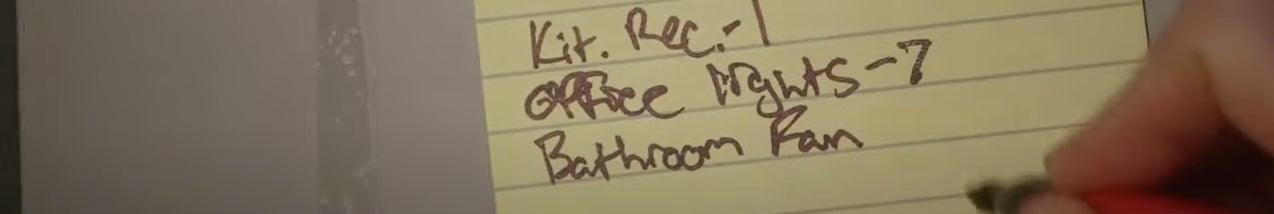 Kit. Rec.-1
Office lights-7
Bathroom Fan